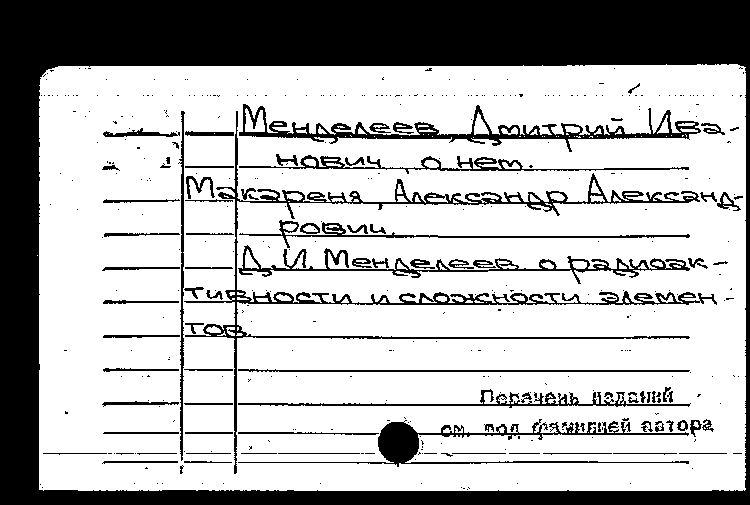 Менделеев, Дмитрий Ива-
нович, о нем.
Макареня, Александр Александ-
рович.
Д.И. Менделеев о радиоак-
тивности и сложности элемен-
тов.
Перечень изданий
см. под фамилией автора